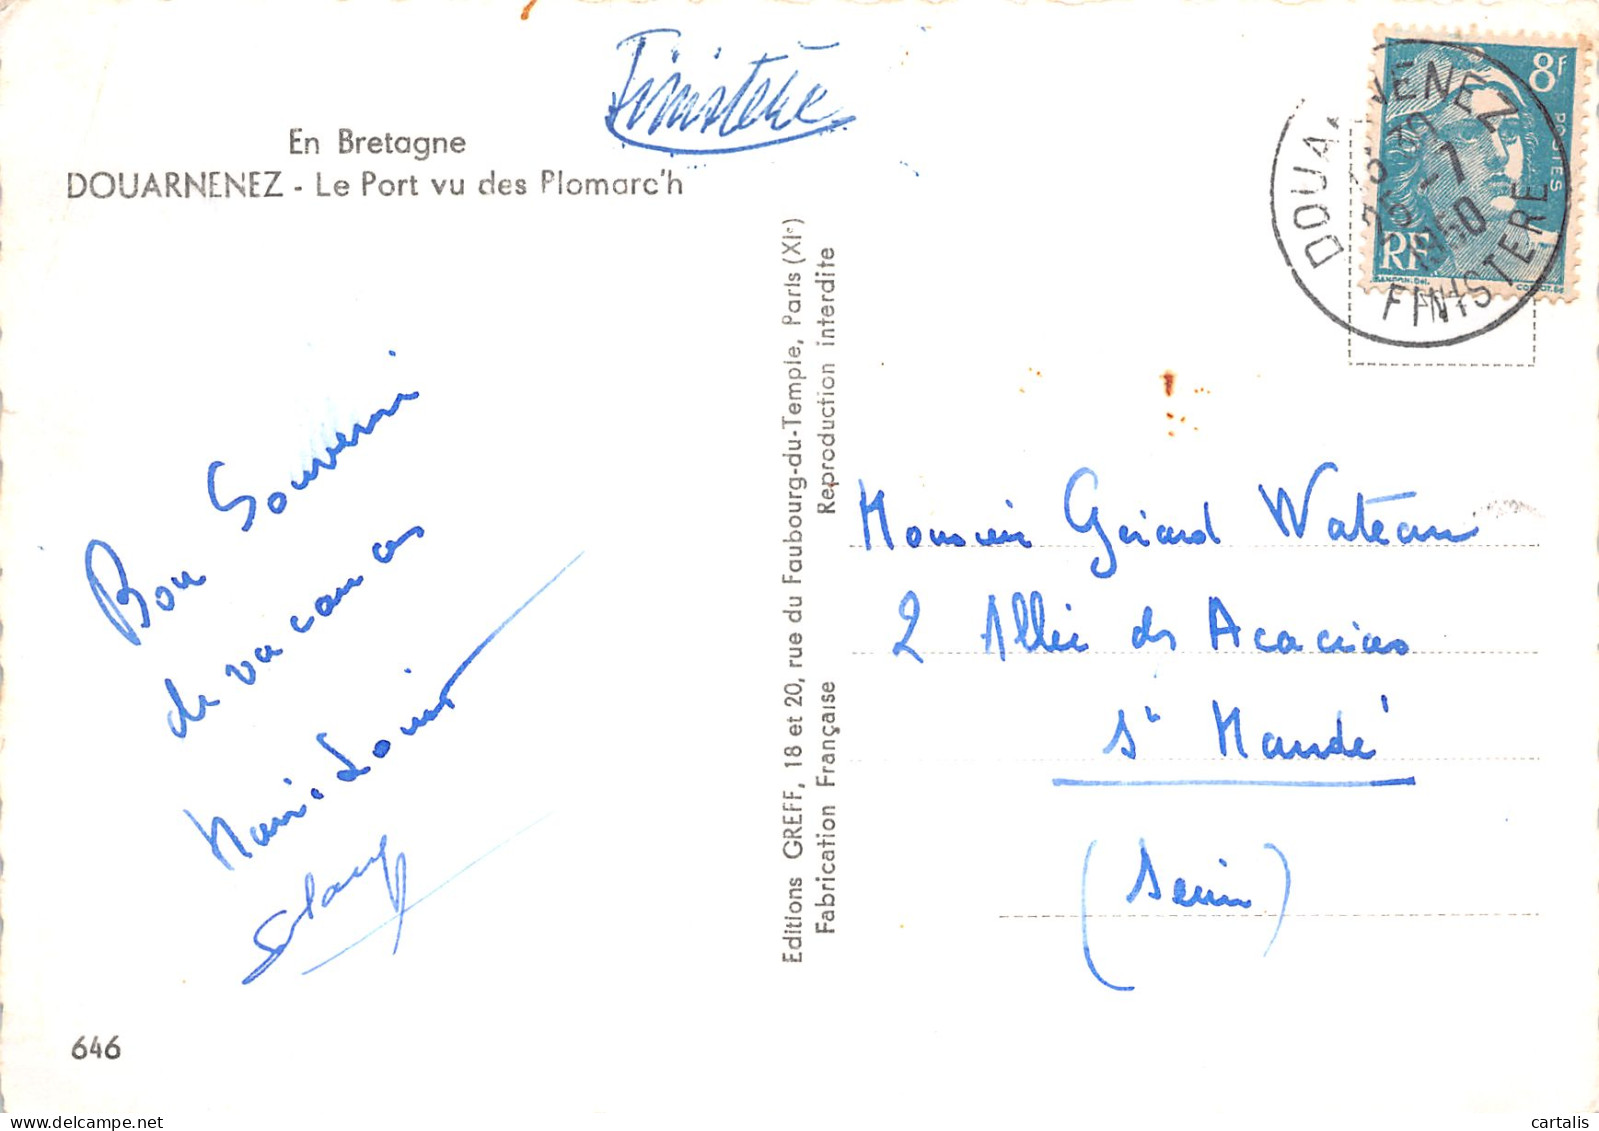 Finistère
En Bretagne
DOUARNENEZ - Le Port vu des Plomarc'h
Bon Souvenir
de vacances
Marie-Louise
646
Editions GREFF, 18 et 20, rue du Faubourg-du-Temple, Paris (XIe)
Fabrication Française Reproduction interdite
8F
POSTES
RF
GANDON.Del.
DOUARNENEZ
-7
1950
FINISTERE
Monsieur Gérard Wateau
2 Allée des Acacias
St Mandé
(Seine)
cartalis